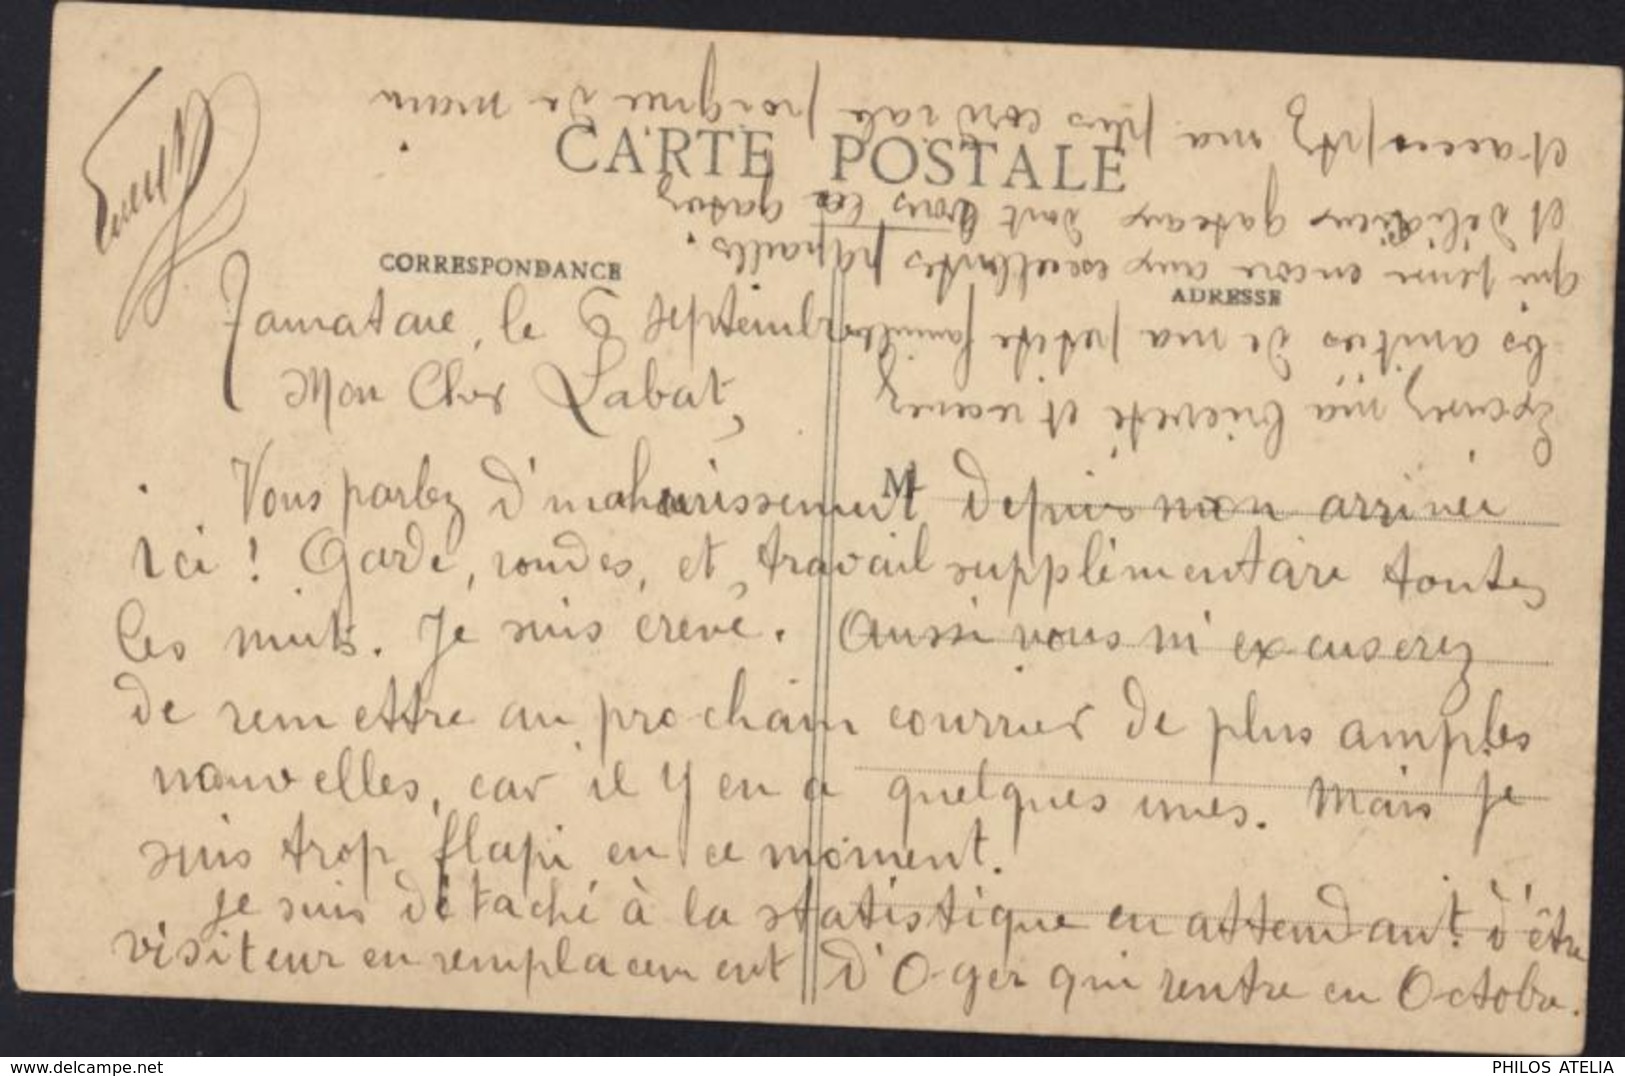 CARTE POSTALE
CORRESPONDANCE
ADRESSE
M
Tamatave, le 6 Septembre
Mon Cher Labat,
Vous parlez d'mahurissement depuis mon arrivée
ici ! Garde, rondes, et travail supplémentaire toutes
les nuits. Je suis crevé. Aussi vous m'excuserez
de remettre au prochain courrier de plus amples
nouvelles, car il y en a quelques unes. Mais je
suis trop flapi en ce moment.
Je suis détaché à la statistique en attendant d'être
visiteur en remplacement d'Oger qui rentre en Octobre.
Excusez ma brièveté et recevez
les amitiés de ma petite famille
qui pense encore aux excellentes papailles.
et délicieux gateaux dont vous les gatiez
et acceptez ma plus cordiale poignée de main
www.delcampe.net
PHILOS ATELIA